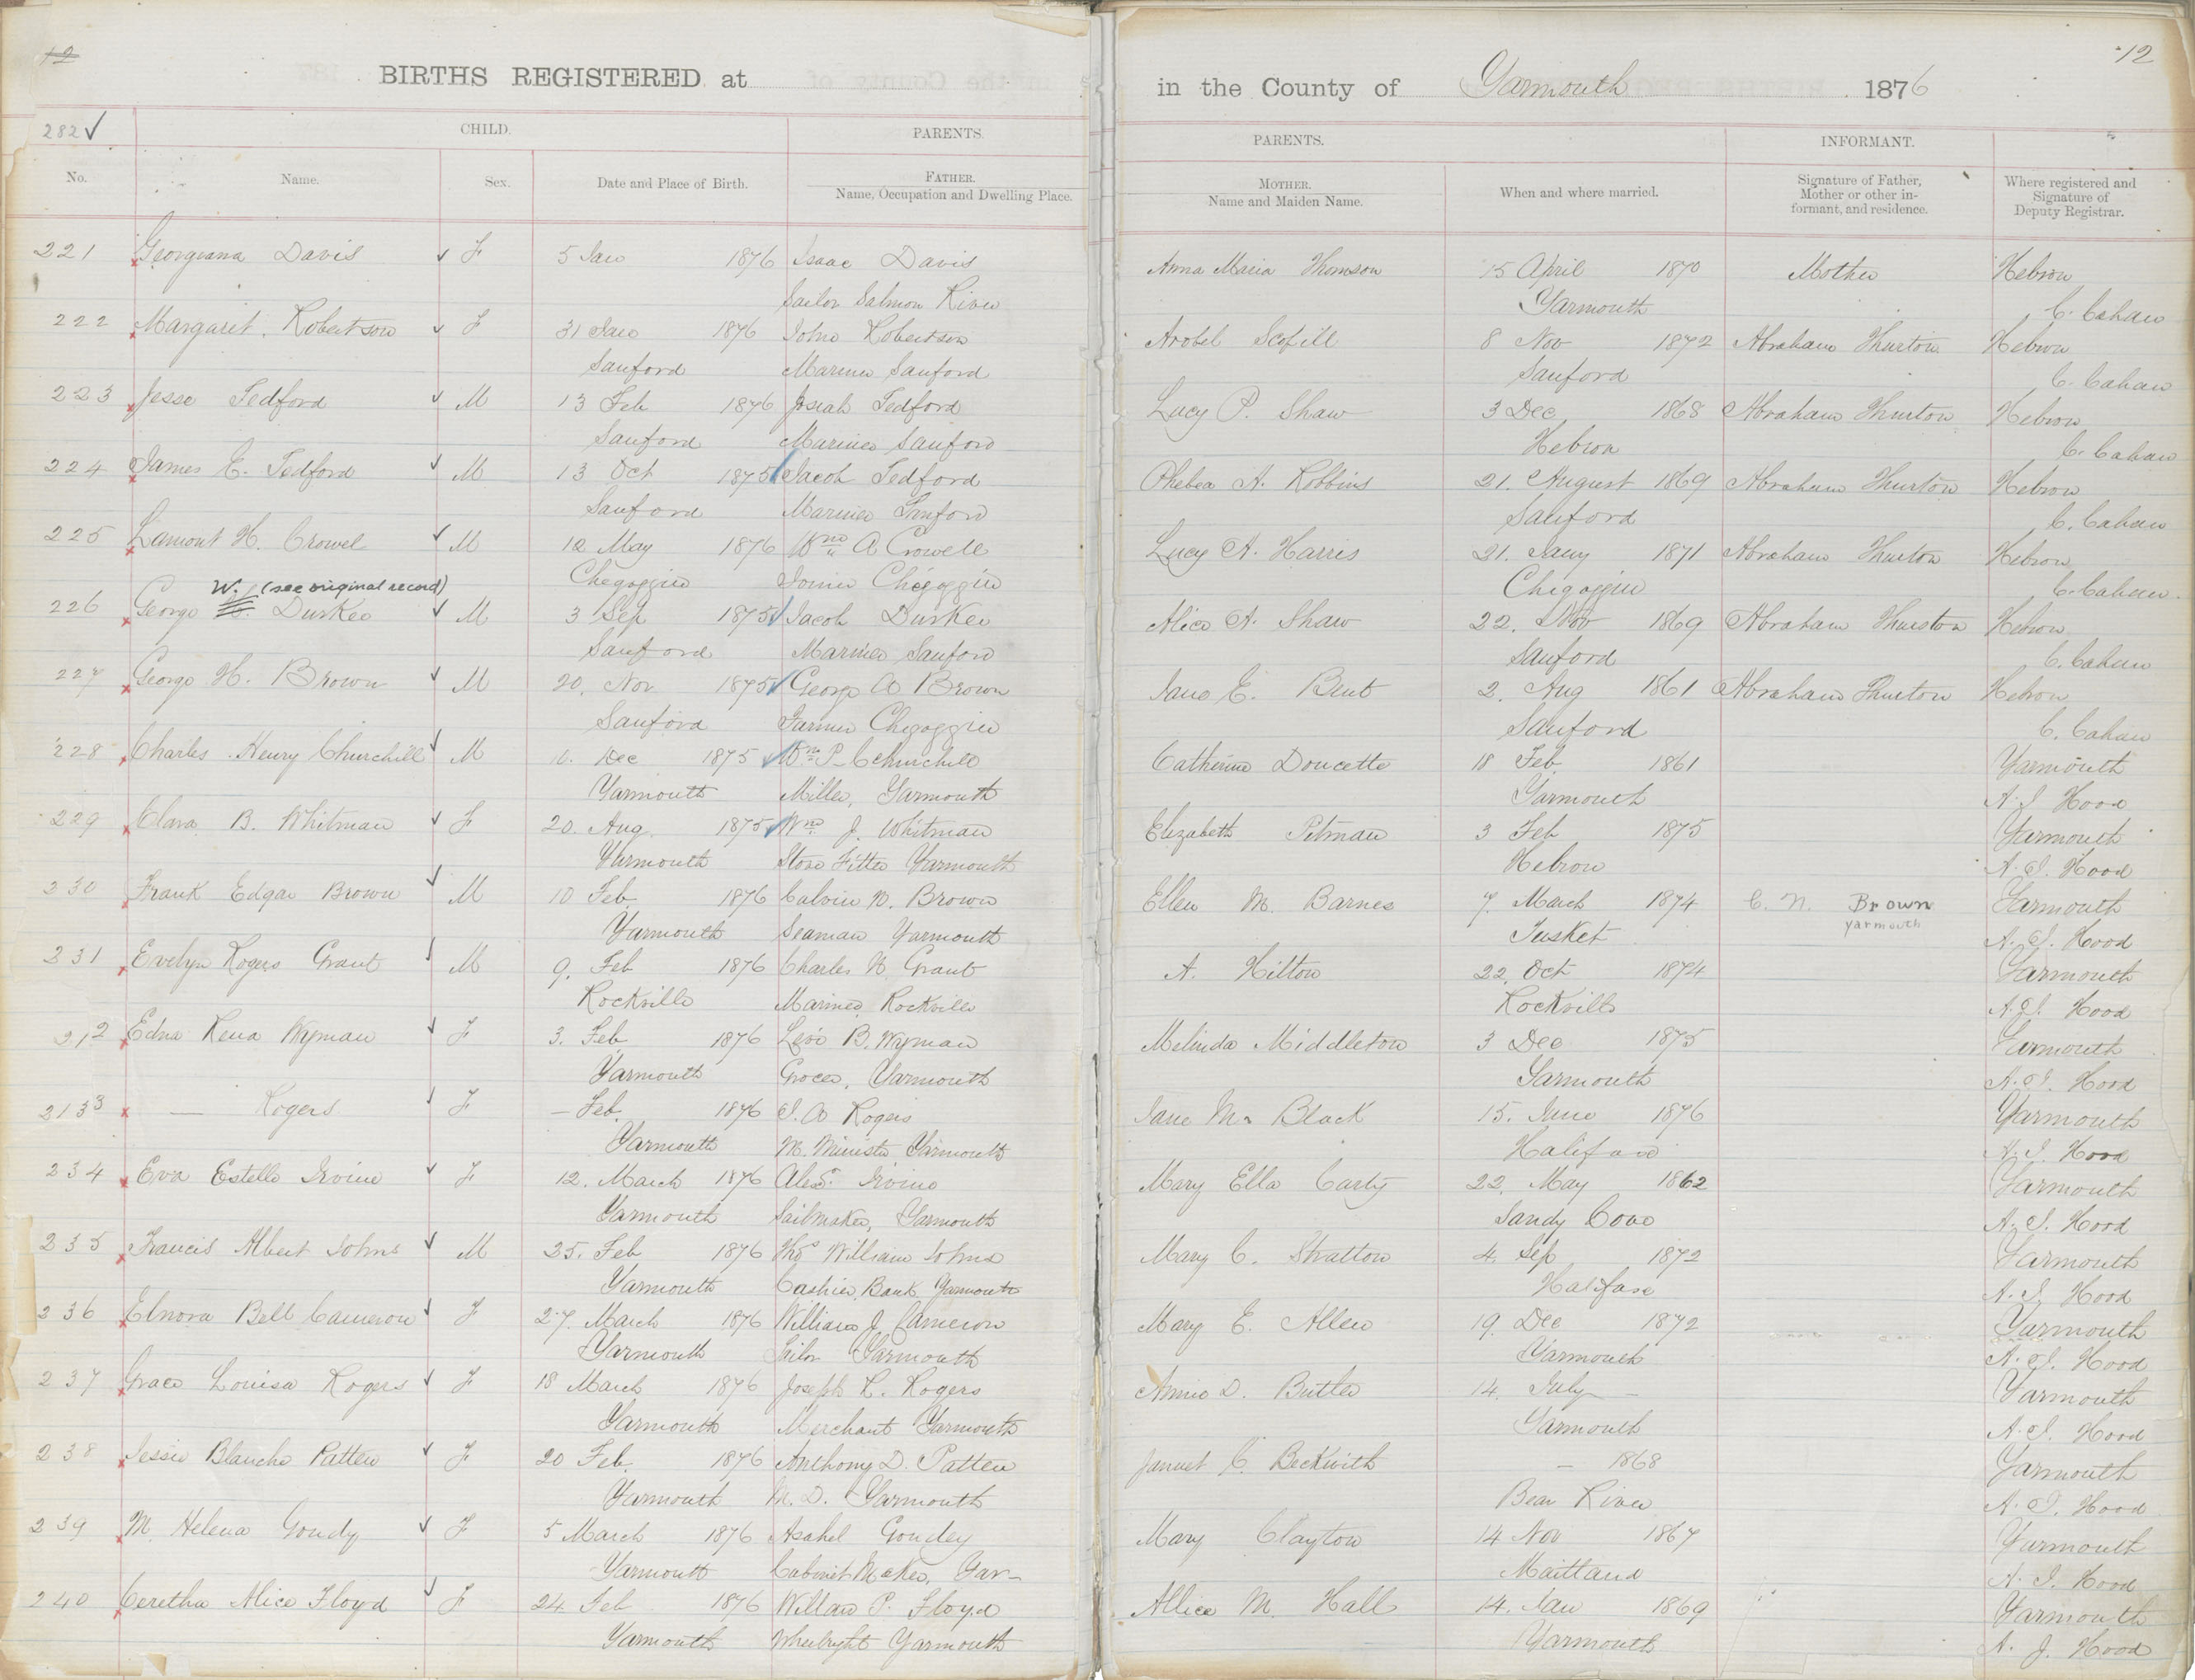 12
BIRTHS REGISTERED at in the County of Yarmouth 1876
12
282 CHILD. PARENTS. PARENTS. INFORMANT.
No. Name. Sex. Date and Place of Birth. FATHER. Name, Occupation and Dwelling Place. MOTHER. Name and Maiden Name. When and where married. Signature of Father, Mother or other informant, and residence. Where registered and Signature of Deputy Registrar.
221 Georgeana Davis F 5 Jan 1876 Isaac Davis Anna Maria Thomson 15 April 1870 Mother Hebron
Sailor Salmon River Yarmouth C. Cahan
222 Margaret Robertson F 31 Jan 1876 John Robertson Arobel Scofill 8 Nov 1872 Abraham Thurston Hebron
Sanford Mariner Sanford Sanford C. Cahan
223 Jesse Tedford M 13 Feb 1876 Josiah Tedford Lucy P. Shaw 3 Dec 1868 Abraham Thurston Hebron
Sanford Mariner Sanford Hebron C. Cahan
224 James E. Tedford M 13 Oct 1875 Jacob Tedford Phebea A. Robbins 21. August 1869 Abraham Thurston Hebron
Sanford Mariner Sanford Sanford C. Cahan
225 Lamont H. Crowel M 12 May 1876 Wm A Crowell Lucy A. Harris 21. Jany 1871 Abraham Thurston Hebron
Chegoggin Joiner Chegoggin Chegoggin C. Cahan.
W. (see original record)
226 George Durkee M 3 Sep 1875 Jacob Durkee Alice A. Shaw 22. Nov 1869 Abraham Thurston Hebron
Sanford Mariner Sanford Sanford C. Cahan
227 George H. Brown M 20. Nov 1875 George A Brown Jane E. Bent 2. Aug 1861 Abraham Thurston Hebron
Sanford Farmer Chegoggin Sanford C. Cahan
228 Charles Henry Churchill M 10. Dec 1875 Wm P. Churchill Catherine Doucette 18 Feb 1861 Yarmouth
Yarmouth Miller, Yarmouth Yarmouth A. J. Hood
229 Clara B. Whitman F 20. Aug. 1875 Wm J. Whitman Elizabeth Pitman 3 Feb 1875 Yarmouth
Yarmouth Stove Fitter Yarmouth Hebron A. J. Hood
230 Frank Edgar Brown M 10 Feb 1876 Calvin N. Brown Ellen M. Barnes 7. March 1874 C. N. Brown Yarmouth
Yarmouth Seaman Yarmouth Tusket yarmouth A. J. Hood
231 Evelyn Rogers Grant M 9. Feb 1876 Charles N. Grant A. Hilton 22. Oct 1874 Yarmouth
Rockville Mariner, Rockville Rockville A. J. Hood
212 Edna Lena Wyman F 3. Feb 1876 Levi B. Wyman Melinda Middleton 3 Dec 1875 Yarmouth
Yarmouth Grocer, Yarmouth Yarmouth A. J. Hood
2133 — Rogers F — Feb. 1876 J. A Rogers Jane M. Black 15. June 1876 Yarmouth
Yarmouth M. Minister Yarmouth Halifax A. J. Hood
234 Eva Estelle Irvine F 12. March 1876 Alex. Irvine Mary Ella Carty 22. May 1862 Yarmouth
Yarmouth Sailmaker, Yarmouth Sandy Cove A. J. Hood
235 Francis Albert Johns M 25. Feb 1876 Thos William Johns Mary C. Stratton 4. Sep 1872 Yarmouth
Yarmouth Cashier, Bank Yarmouth Halifax A. J. Hood
236 Elnora Bell Cameron F 27. March 1876 William J. Cameron Mary E. Allen 19. Dec 1872 Yarmouth
Yarmouth Sailor Yarmouth Yarmouth A. J. Hood
237 Grace Louisa Rogers F 18 March 1876 Joseph R. Rogers Annie D. Butler 14. July — Yarmouth
Yarmouth Merchant Yarmouth Yarmouth A. J. Hood
238 Jessie Blanche Patten F 20 Feb. 1876 Anthony D. Patten Jannet C. Beckwith — 1868 Yarmouth
Yarmouth M. D. Yarmouth Bear River A. J. Hood
239 M. Helena Goudy F 5 March 1876 Asahel Goudey Mary Clayton 14 Nov 1867 Yarmouth
Yarmouth Cabinet Maker, Yar— Maitland A. J. Hood
240 Ceretha Alice Floyd F 24 Feb 1876 Willaw P. Floyd Allice M. Hall 14. Jan 1869 Yarmouth
Yarmouth Wheelright Yarmouth Yarmouth A. J. Hood